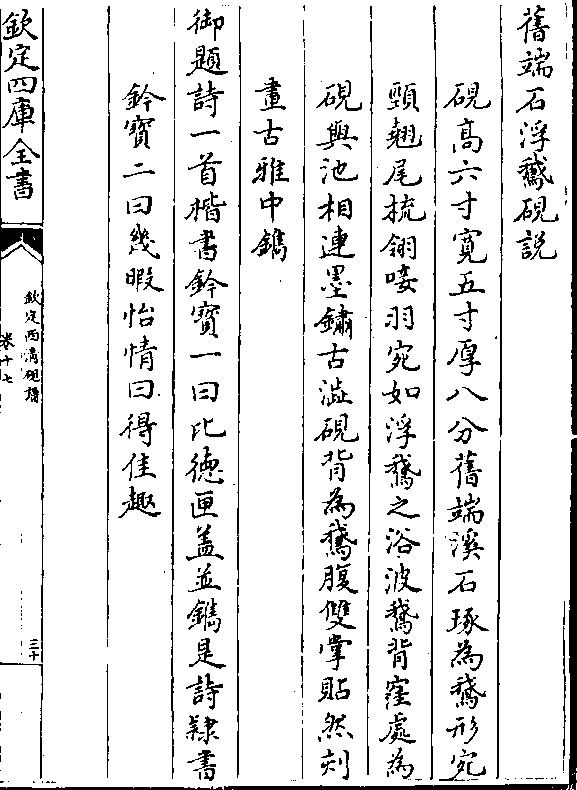 舊端石浮鵞硯説
硯髙六寸寛五寸厚八分舊端溪石琢為鵞形宛
頸翹尾梳翎唼羽宛如浮鵞之浴波鵞背窪處為
硯與池相連墨鏽古澁硯背為鵞腹雙掌貼然刻
畫古雅中鐫
御題詩一首楷書鈐寶一曰比德匣蓋並鐫是詩隸書
鈐寳二曰幾暇怡情曰得佳趣
欽定四庫全書
欽定西清硯譜
卷十七
三十